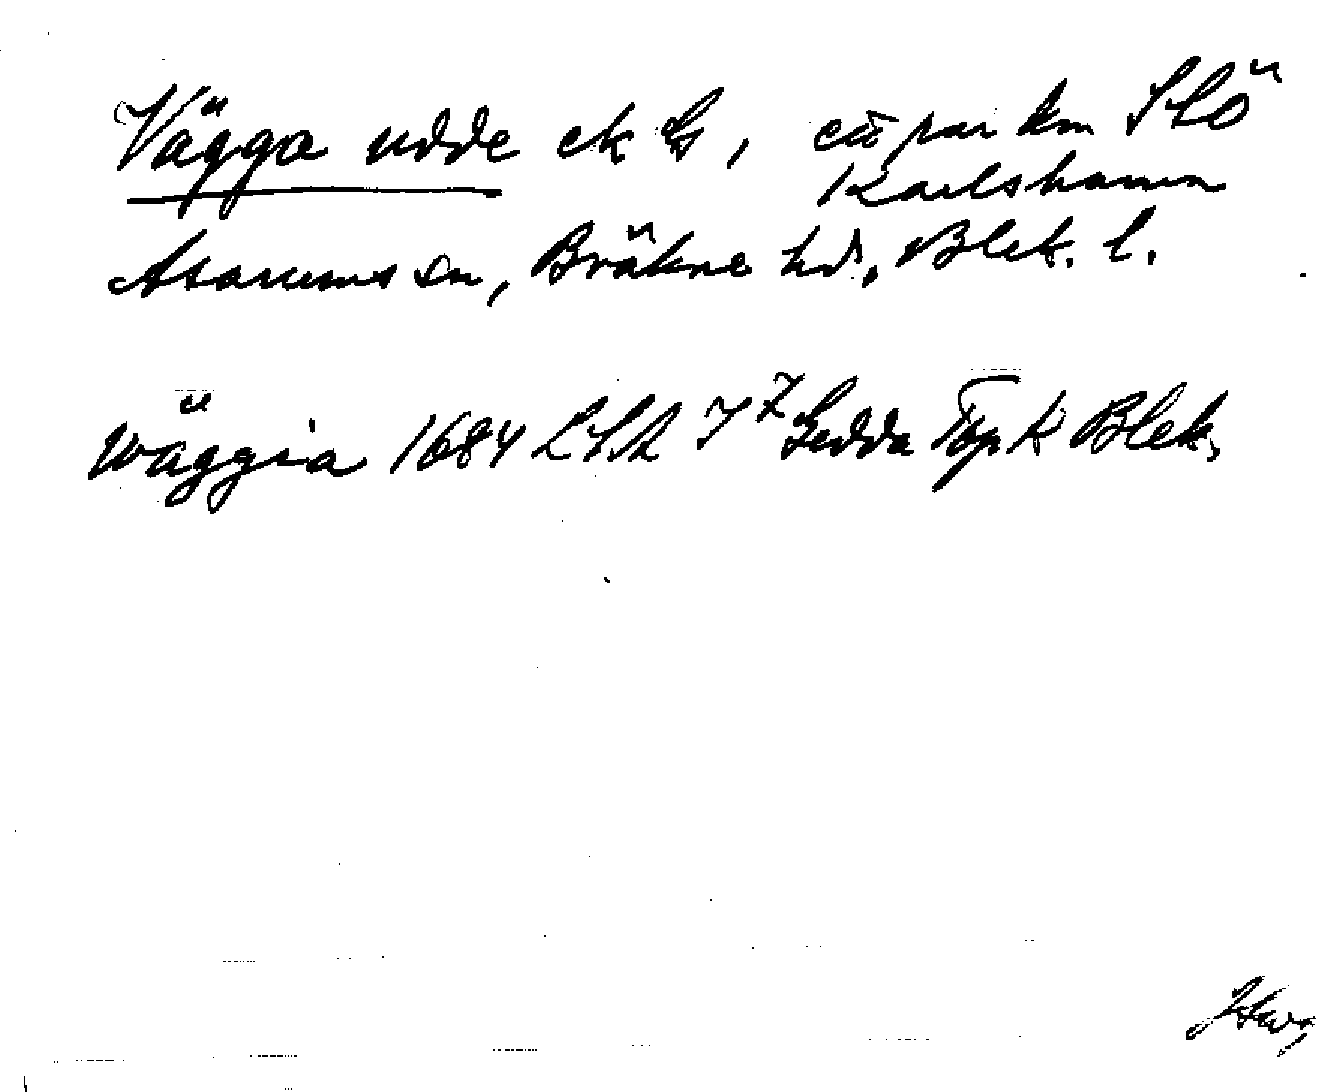 Vägga udde ek G, ett par km SSÖ
Karlshamn
Asarums sn, Bräkne hd, Blek. l.
Wäggia 1684 LSA I 7 Gedda Top K Blek.